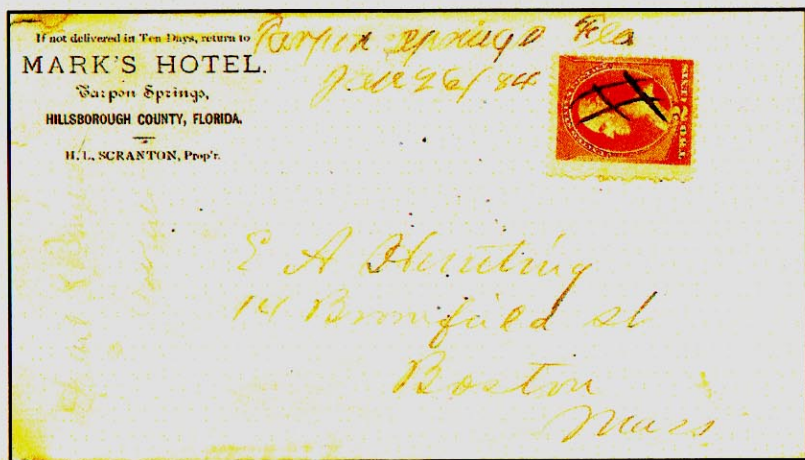 If not delivered in Ten Days, return to
MARK'S HOTEL.
Tarpon Springs,
HILLSBOROUGH COUNTY, FLORIDA.
H. L. SCRANTON, Prop'r.
Tarpon Springs Fla
Jan 26/84
TWO CENTS
E A Hunting
14 Bromfield st
Boston
Mass